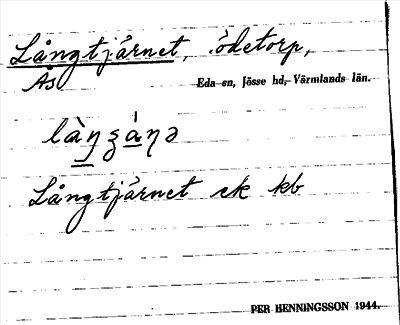 Långtjärnet, ödetorp,
Ås
Eda sn, Jösse hd, Värmlands län.
làŋʒàṇə
Långtjärnet ek kb
PER HENNINGSSON 1944.